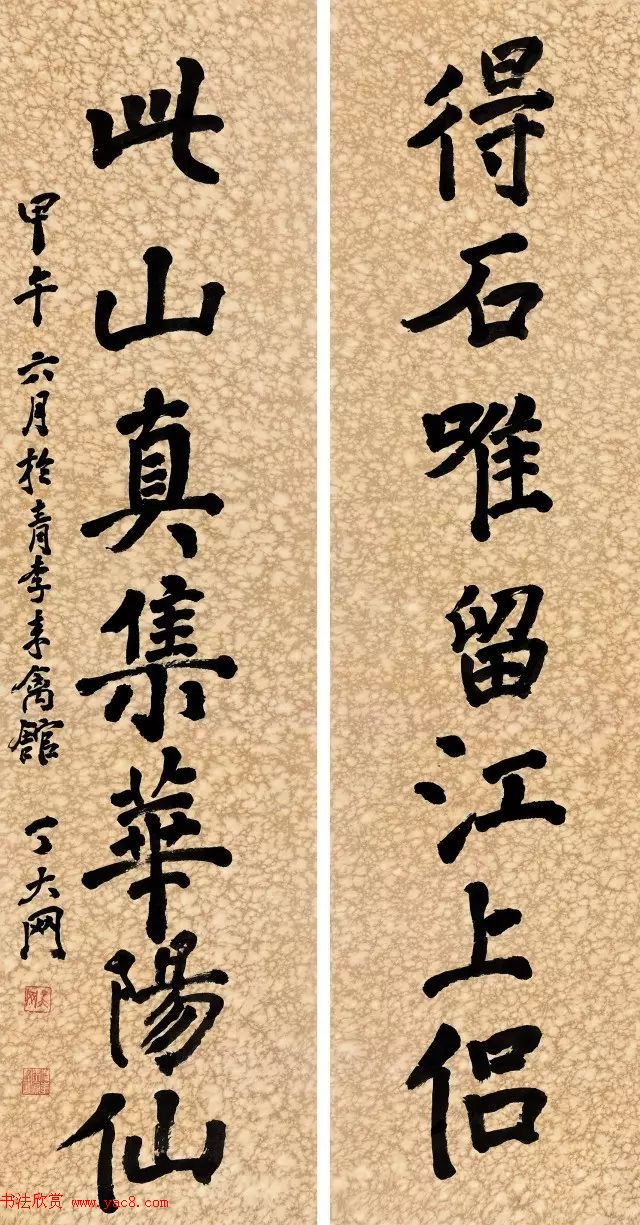 得石唯留江上侣
此山真集華陽仙
甲午六月於青李来禽館 丁大网
书法欣赏 www.yac8.com